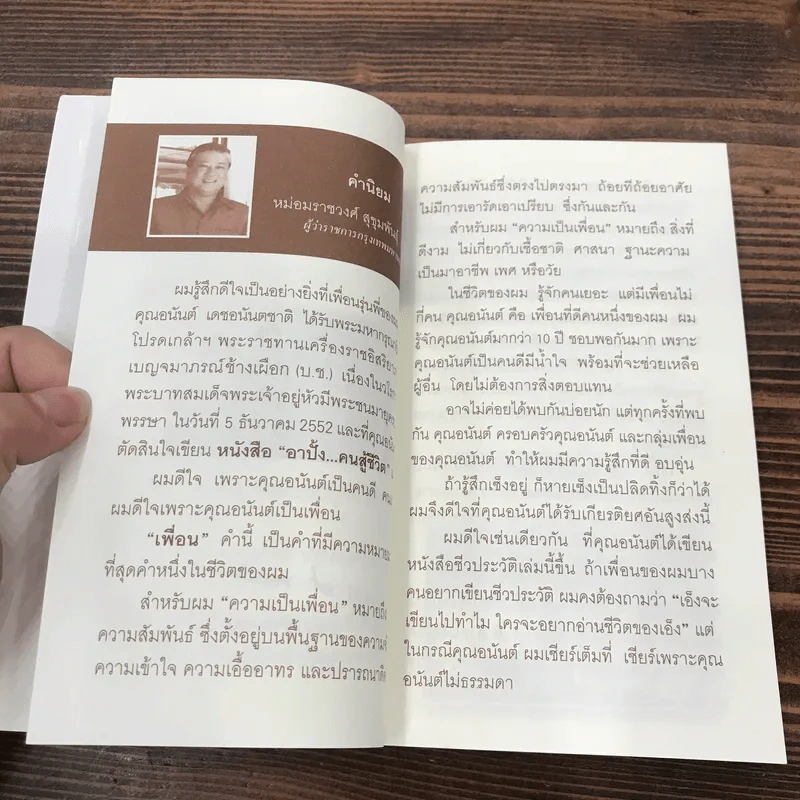 คำนิยม
หม่อมราชวงศ์ สุขุมพันธุ์
ผู้ว่าราชการกรุงเทพมหา
ผมรู้สึกดีใจเป็นอย่างยิ่งที่เพื่อนรุ่นพี่ของผม
คุณอนันต์ เดชอนันตชาติ ได้รับพระมหากรุณา
โปรดเกล้าฯ พระราชทานเครื่องราชอิสริยา
เบญจมาภรณ์ช้างเผือก (บ.ช.) เนื่องในวโรกา
พระบาทสมเด็จพระเจ้าอยู่หัวมีพระชนมายุครบ
พรรษา ในวันที่ 5 ธันวาคม 2552 และที่คุณอนัน
ตัดสินใจเขียน หนังสือ “อาปั้ง...คนสู้ชีวิต”
ผมดีใจ เพราะคุณอนันต์เป็นคนดี
ผมดีใจเพราะคุณอนันต์เป็นเพื่อน
“เพื่อน” คำนี้ เป็นคำที่มีความหมาย
ที่สุดคำหนึ่งในชีวิตของผม
สำหรับผม “ความเป็นเพื่อน” หมายถึง
ความสัมพันธ์ ซึ่งตั้งอยู่บนพื้นฐานของความ
ความเข้าใจ ความเอื้ออาทร และปรารถนาดี
ความสัมพันธ์ซึ่งตรงไปตรงมา ถ้อยทีถ้อยอาศัย
ไม่มีการเอารัดเอาเปรียบ ซึ่งกันและกัน
สำหรับผม “ความเป็นเพื่อน” หมายถึง สิ่งที่
ดีงาม ไม่เกี่ยวกับเชื้อชาติ ศาสนา ฐานะความ
เป็นมาอาชีพ เพศ หรือวัย
ในชีวิตของผม รู้จักคนเยอะ แต่มีเพื่อนไม่
กี่คน คุณอนันต์ คือ เพื่อนที่ดีคนหนึ่งของผม ผม
รู้จักคุณอนันต์มากว่า 10 ปี ชอบพอกันมาก เพราะ
คุณอนันต์เป็นคนดีมีน้ำใจ พร้อมที่จะช่วยเหลือ
ผู้อื่น โดยไม่ต้องการสิ่งตอบแทน
อาจไม่ค่อยได้พบกันบ่อยนัก แต่ทุกครั้งที่พบ
กัน คุณอนันต์ ครอบครัวคุณอนันต์ และกลุ่มเพื่อน
ของคุณอนันต์ ทำให้ผมมีความรู้สึกที่ดี อบอุ่น
ถ้ารู้สึกเซ็งอยู่ ก็หายเซ็งเป็นปลิดทิ้งก็ว่าได้
ผมจึงดีใจที่คุณอนันต์ได้รับเกียรติยศอันสูงส่งนี้
ผมดีใจเช่นเดียวกัน ที่คุณอนันต์ได้เขียน
หนังสือชีวประวัติเล่มนี้ขึ้น ถ้าเพื่อนของผมบาง
คนอยากเขียนชีวประวัติ ผมคงต้องถามว่า “เอ็งจะ
เขียนไปทำไม ใครจะอยากอ่านชีวิตของเอ็ง” แต่
ในกรณีคุณอนันต์ ผมเชียร์เต็มที่ เชียร์เพราะคุณ
อนันต์ไม่ธรรมดา